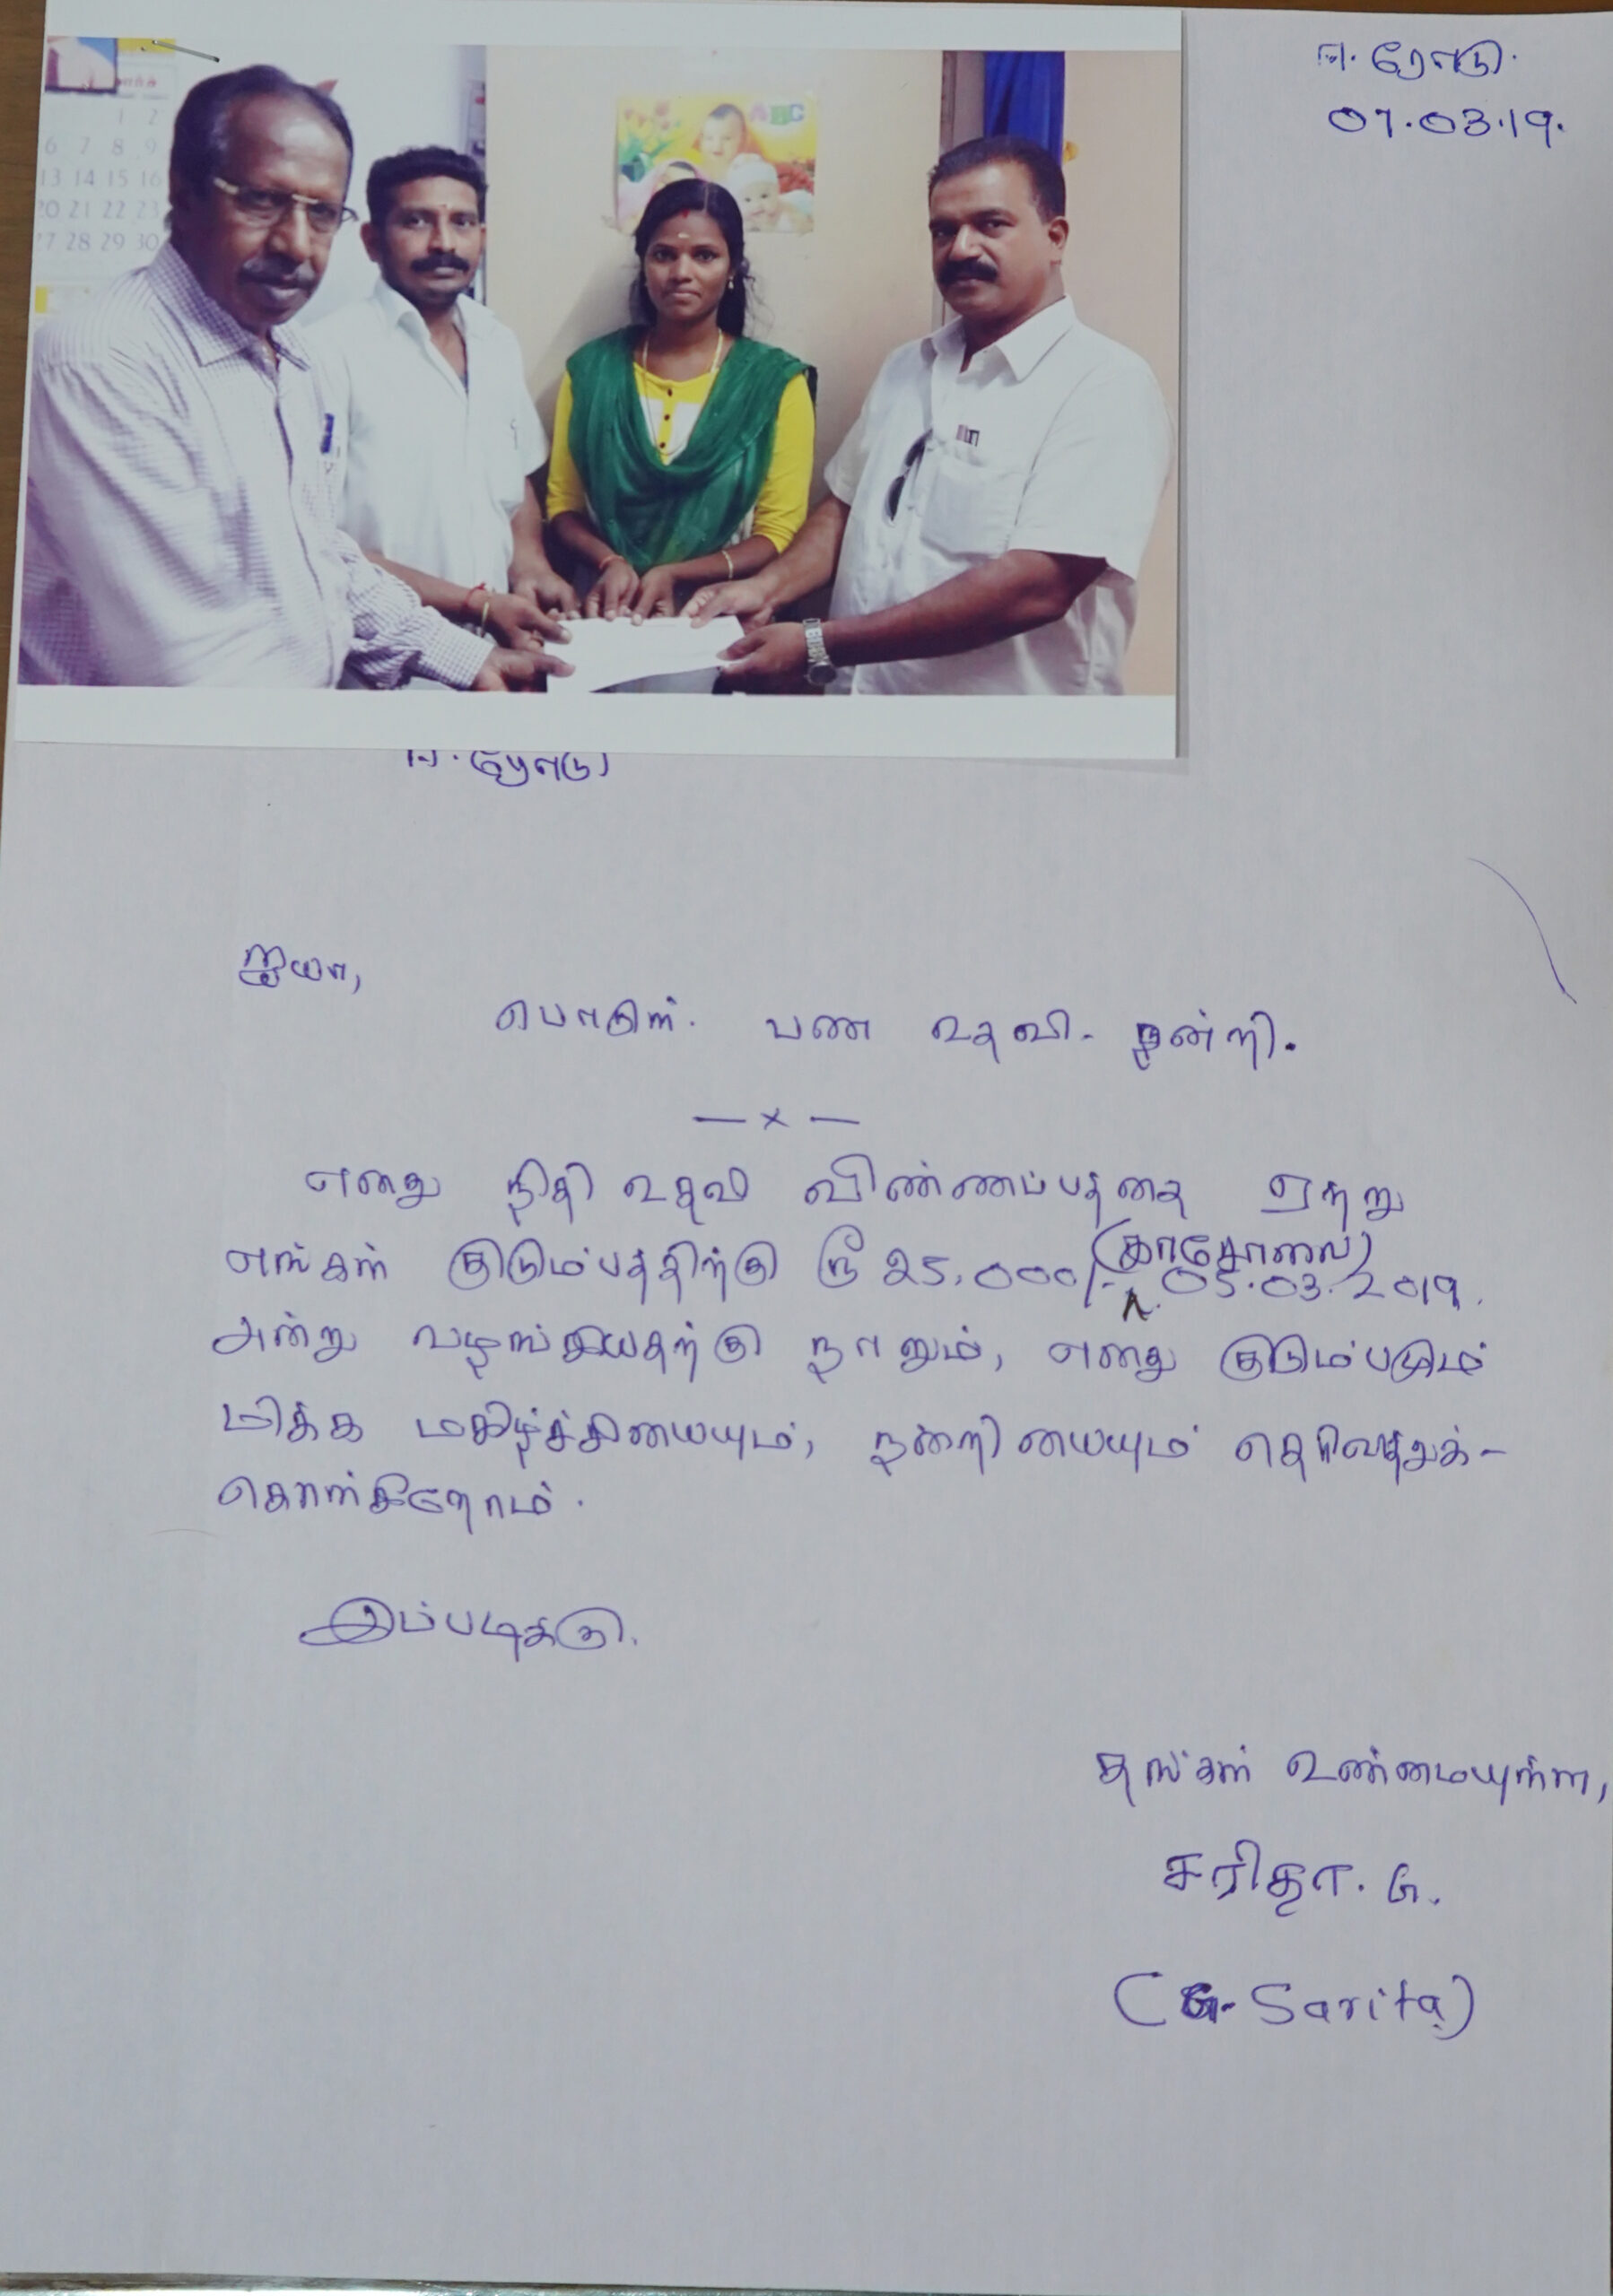 ஈரோடு.
07.03.19.
ABC
1 2
6 7 8 9
13 14 15 16
20 21 22 23
27 28 29 30
ஈரோடு
ஐயா,
பொருள். பண உதவி - நன்றி.
— x —
எனது நிதி உதவி விண்ணப்பதை ஏற்று
எங்கள் குடும்பத்திற்கு ரூ 25,000/- (காசோலை) 05.03.2019.
அன்று வழங்கியதற்கு நானும், எனது குடும்பமும்
மிக்க மகிழ்ச்சியையும், நன்றியையும் தெரிவித்துக் -
கொள்கிறோம்.
இப்படிக்கு.
தங்கள் உண்மையுள்ள,
சரிதா. G.
(G. Sarita)